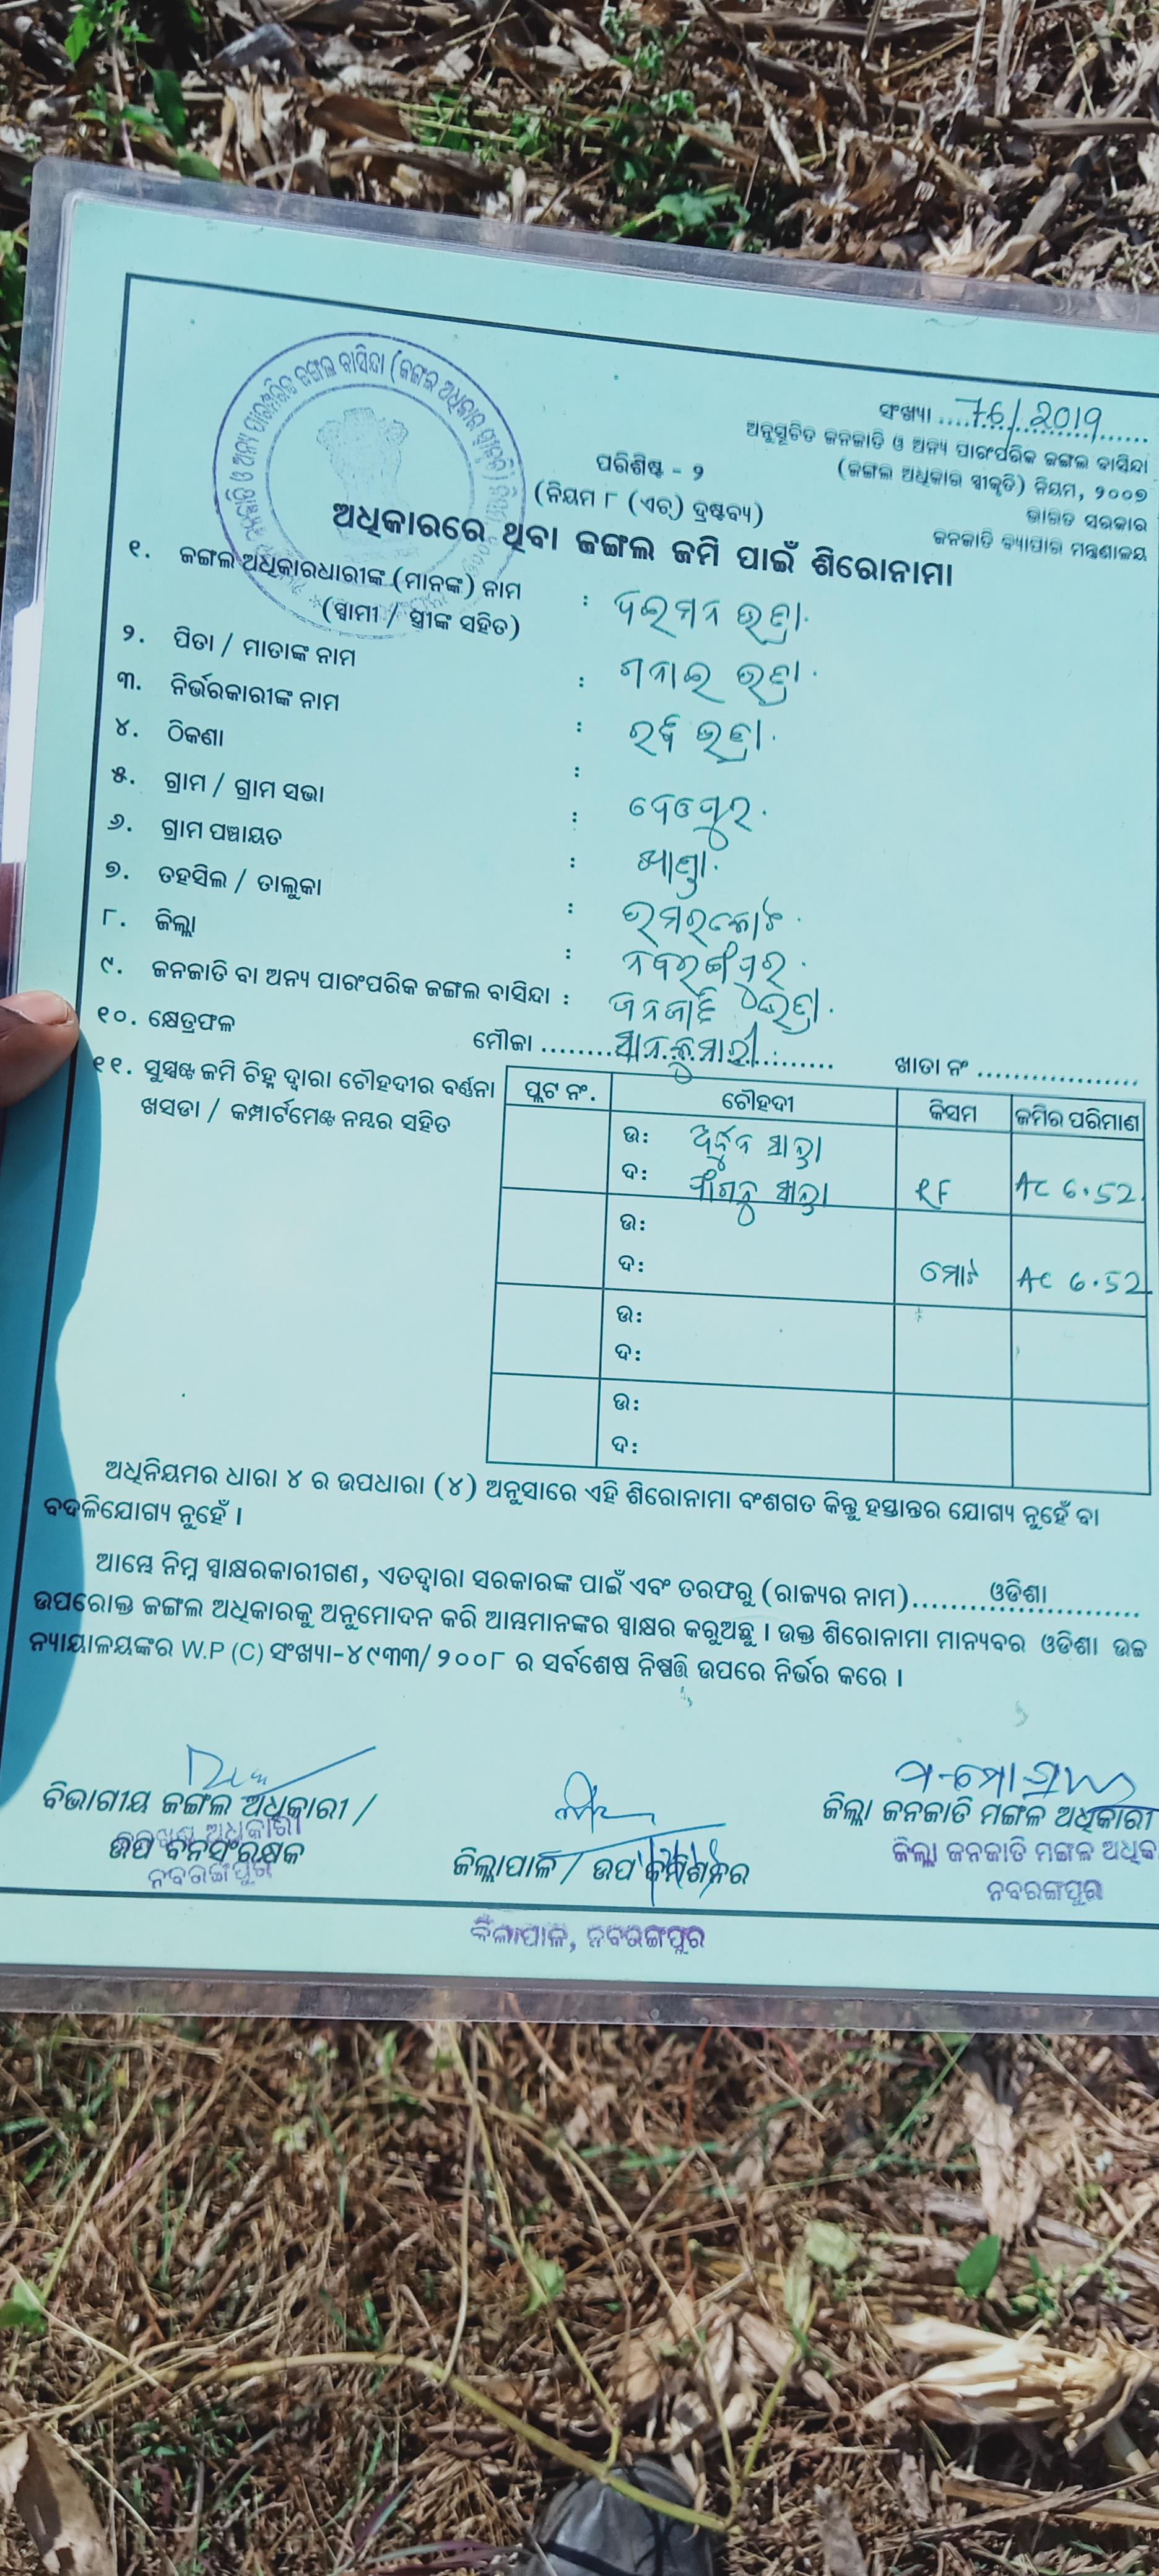 ସଂଖ୍ୟା ....76/2019....
ଅନୁସୂଚିତ ଜନଜାତି ଓ ଅନ୍ୟ ପାରଂପରିକ ଜଙ୍ଗଲ ବାସିନ୍ଦା
(ଜଙ୍ଗଲ ଅଧିକାର ସ୍ୱୀକୃତି) ନିୟମ, ୨୦୦୭
ଭାରତ ସରକାର
ଜନଜାତି ବ୍ୟାପାର ମନ୍ତ୍ରଣାଳୟ
ପରିଶିଷ୍ଟ - ୨
(ନିୟମ ୮ (ଏଚ୍) ଦ୍ରଷ୍ଟବ୍ୟ)
ଅଧିକାରରେ ଥିବା ଜଙ୍ଗଲ ଜମି ପାଇଁ ଶିରୋନାମା
୧. ଜଙ୍ଗଲ ଅଧିକାରଧାରୀଙ୍କ (ମାନଙ୍କ) ନାମ : ଭତ୍ରା
(ସ୍ୱାମୀ / ସ୍ତ୍ରୀଙ୍କ ସହିତ)
୨. ପିତା / ମାତାଙ୍କ ନାମ : ଭତ୍ରା
୩. ନିର୍ଭରକାରୀଙ୍କ ନାମ : ଭତ୍ରା
୪. ଠିକଣା :
୫. ଗ୍ରାମ / ଗ୍ରାମ ସଭା : ଦେଓପୁର
୬. ଗ୍ରାମ ପଞ୍ଚାୟତ :
୭. ତହସିଲ / ତାଲୁକା : ଉମରକୋଟ
୮. ଜିଲ୍ଲା : ନବରଙ୍ଗପୁର
୯. ଜନଜାତି ବା ଅନ୍ୟ ପାରଂପରିକ ଜଙ୍ଗଲ ବାସିନ୍ଦା : ଜନଜାତି ଭତ୍ରା
୧୦. କ୍ଷେତ୍ରଫଳ ମୌଜା ........ ଖାତା ନଂ ........
୧୧. ସୁସ୍ପଷ୍ଟ ଜମି ଚିହ୍ନ ଦ୍ୱାରା ଚୌହଦୀର ବର୍ଣ୍ଣନା
ଖସଡା / କମ୍ପାର୍ଟମେଣ୍ଟ ନମ୍ବର ସହିତ
ପ୍ଲଟ ନଂ. ଚୌହଦୀ କିସମ ଜମିର ପରିମାଣ
ଉ: ଅର୍ଜୁନ
ଦ: RF AC 6.52
ଉ:
ଦ: ମୋଟ AC 6.52
ଉ:
ଦ:
ଉ:
ଦ:
ଅଧିନିୟମର ଧାରା ୪ ର ଉପଧାରା (୪) ଅନୁସାରେ ଏହି ଶିରୋନାମା ବଂଶଗତ କିନ୍ତୁ ହସ୍ତାନ୍ତର ଯୋଗ୍ୟ ନୁହେଁ ବା
ବଦଳିଯୋଗ୍ୟ ନୁହେଁ ।
ଆମ୍ଭେ ନିମ୍ନ ସ୍ୱାକ୍ଷରକାରୀଗଣ, ଏତଦ୍ୱାରା ସରକାରଙ୍କ ପାଇଁ ଏବଂ ତରଫରୁ (ରାଜ୍ୟର ନାମ)........ଓଡିଶା........
ଉପରୋକ୍ତ ଜଙ୍ଗଲ ଅଧିକାରକୁ ଅନୁମୋଦନ କରି ଆମ୍ଭମାନଙ୍କର ସ୍ୱାକ୍ଷର କରୁଅଛୁ । ଉକ୍ତ ଶିରୋନାମା ମାନ୍ୟବର ଓଡିଶା ଉଚ୍ଚ
ନ୍ୟାୟାଳୟଙ୍କର W.P (C) ସଂଖ୍ୟା-୪୯୩୩/୨୦୦୮ ର ସର୍ବଶେଷ ନିଷ୍ପତ୍ତି ଉପରେ ନିର୍ଭର କରେ ।
ବିଭାଗୀୟ ଜଙ୍ଗଲ ଅଧିକାରୀ /
ଉପ ବନସଂରକ୍ଷକ
ନବରଙ୍ଗପୁର
ଜିଲ୍ଲାପାଳ / ଉପ କମିଶନର
ଜିଲ୍ଲାପାଳ, ନବରଙ୍ଗପୁର
ଜିଲ୍ଲା ଜନଜାତି ମଙ୍ଗଳ ଅଧିକାରୀ
ଜିଲ୍ଲା ଜନଜାତି ମଙ୍ଗଳ ଅଧିକ
ନବରଙ୍ଗପୁର